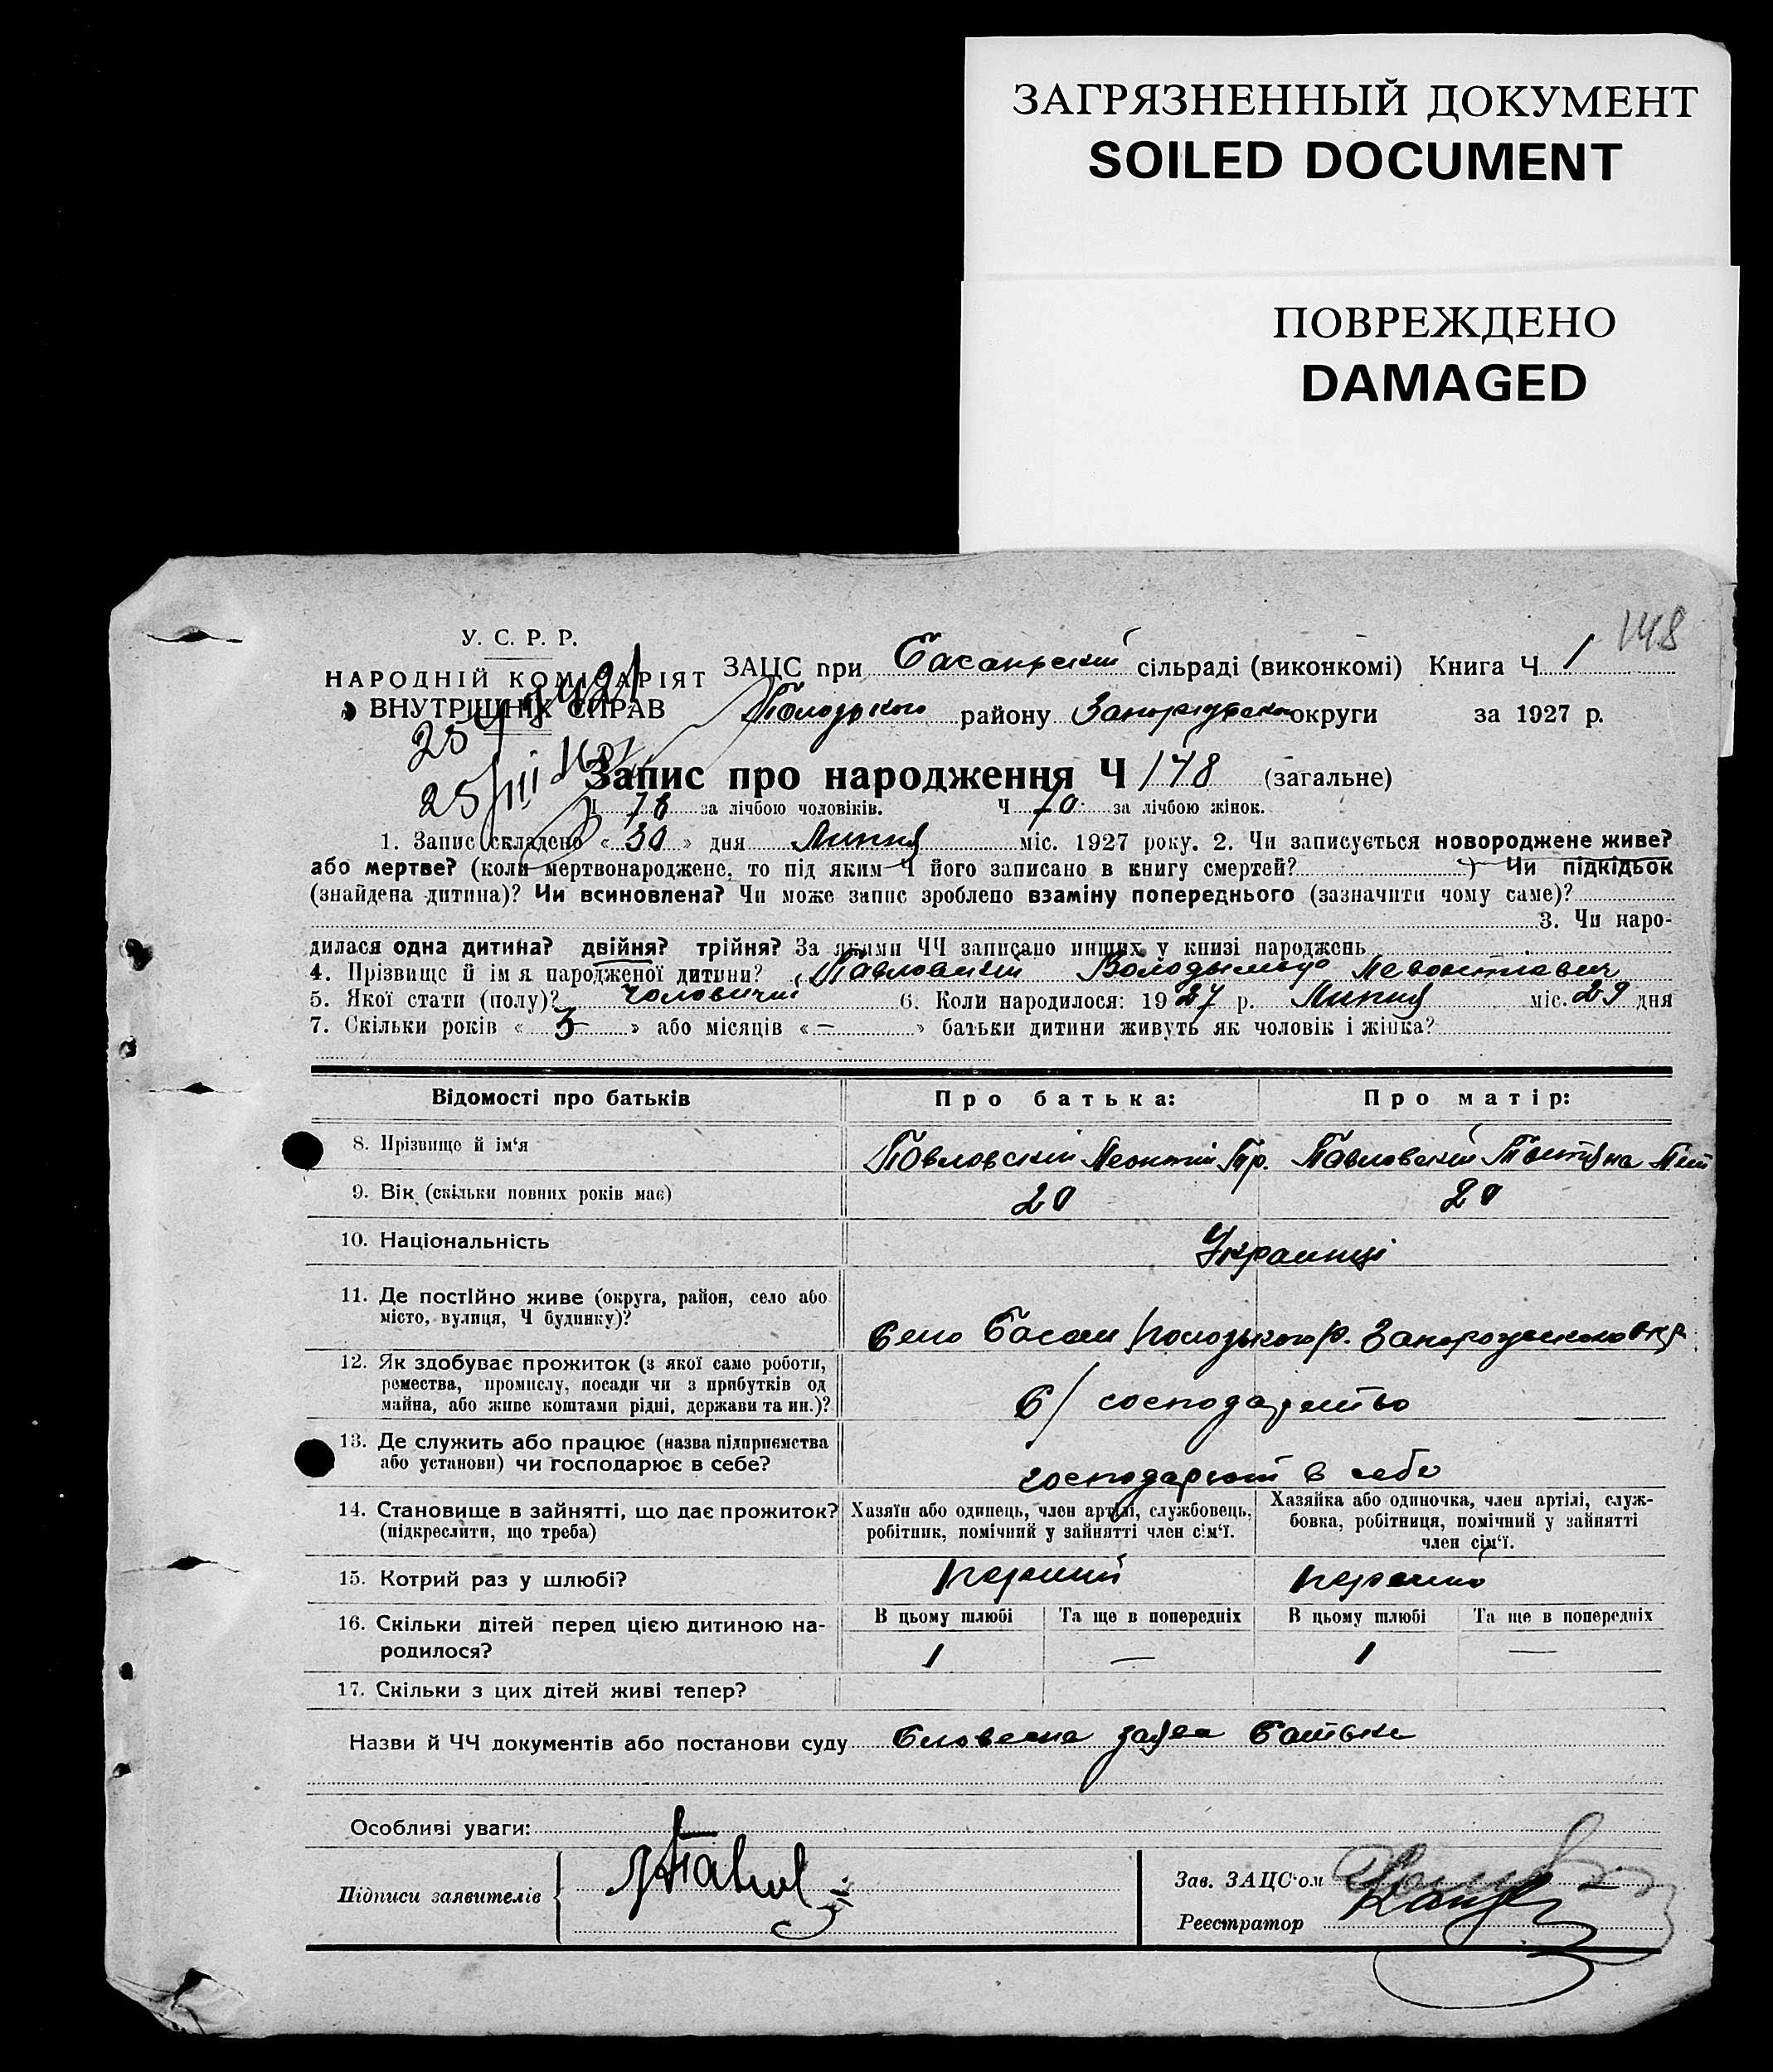 ЗАГРЯЗНЕННЫЙ ДОКУМЕНТ
SOILED DOCUMENT
ПОВРЕЖДЕНО
DAMAGED
148
У. С. Р. Р.
НАРОДНІЙ КОМІСАРІЯТ
ВНУТРІШНІХ СПРАВ
ЗАЦС при Басанській сільраді (виконкомі) Книга Ч 1
Пологського району Запорізської округи за 1927 р.
Запис про народження Ч 148 (загальне)
Ч 78 за лічбою чоловіків. Ч 70 за лічбою жінок.
1. Запис складено «30» дня Липня міс. 1927 року. 2. Чи записується новороджене живе?
або мертве? (коли мертвонароджене, то під яким Ч його записано в книгу смертей? ) Чи підкідьок
(знайдена дитина)? Чи всиновлена? Чи може запис зроблено взаміну попереднього (зазначити чому саме)?
3. Чи наро-
дилася одна дитина? двійня? трійня? За якими ЧЧ записано инших у книзі народжень
4. Прізвище й ім'я народженої дитини? Павловскій Володымыр Левонтіавич
5. Якої стати (полу)? чоловичий 6. Коли народилося: 1927 р. Липня міс. 29 дня
7. Скільки років « 3 » або місяців « — » батьки дитини живуть як чоловік і жінка?
Відомості про батьків Про батька: Про матір:
8. Прізвище й ім'я Павловскій Леонтій Гр. Павловскій
9. Вік (скільки повних років має) 20 20
10. Національність Украинці
11. Де постІйно живе (округа, район, село або
місто, вулиця, Ч будинку)?
Село Басань Пологського р. Запорожського окр
12. Як здобуває прожиток (з якої само роботи,
ремества, промислу, посади чи з прибутків од
майна, або живе коштами рідні, держави та ин.)?
С/ господарство
13. Де служить або працює (назва підприємства
або установи) чи господарює в себе?
господарюють в себе
14. Становище в зайнятті, що дає прожиток?
(підкреслити, що треба)
Хазяїн або одинець, член артілі, службовець,
робітник, помічний у зайнятті член сім'ї.
Хазяйка або одиночка, член артілі, служ-
бовка, робітниця, помічний у зайнятті
член сім'ї.
15. Котрий раз у шлюбі? перший перший
16. Скільки дітей перед цією дитиною на-
родилося?
В цьому шлюбі Та ще в попередніх В цьому шлюбі Та ще в попередніх
1 — 1 —
17. Скільки з цих дітей живі тепер?
Назви й ЧЧ документів або постанови суду Словесна заява батька
Особливі уваги:
Підписи заявителів
Зав. ЗАЦС'ом
Реєстратор